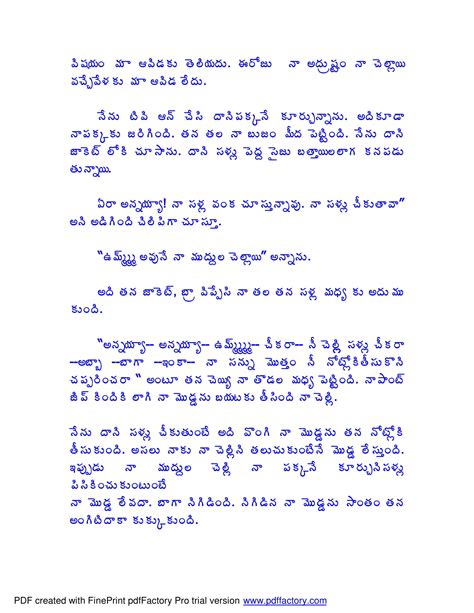 విషయం మా ఆవిడకు తెలియదు. ఈరోజు నా అదృుష్టం నా చెల్లాయి
వచ్చేవేళకు మా ఆవిడ లేదు.
నేను టివి ఆన్ చేసి దానిపక్కనే కూర్చున్నాను. అదికూడా
నాపక్కకు జరిగింది. తన తల నా బుజం మీద పెట్టింది. నేను దాని
జాకెట్ లోకి చూసాను. దాని సళ్లు పెద్ద సైజు బత్తాయిలలాగ కనపడు
తున్నాయి.
ఏరా అన్నయ్యా! నా సళ్ల వంక చూస్తున్నావు. నా సళ్లు చీకుతావా”
అని అడిగింది చిలిపిగా చూస్తూ.
“ఉమ్మ్మ్మ్మ అవునే నా ముద్దుల చెల్లాయి” అన్నాను.
అది తన జాకెట్, బ్రా విప్పేసి నా తల తన సళ్ల మధ్య కు అదుము
కుంది.
“అన్నయ్యా-- అన్నయ్యా-- ఉమ్మ్మ్మ్మ-- చీకరా-- నీ చెల్లి సళ్లు చీకరా
--అబ్బా --బాగా --ఇంకా-- నా సన్ను మొత్తం నీ నోట్లోకితీసుకొని
చప్పరించరా “ అంటూ తన చెయ్యి నా తొడల మధ్య పెట్టింది. నాపాంట్
జిప్ కిందికి లాగి నా మొడ్డను బయటకు తీసింది నా చెల్లి.
నేను దాని సళ్లు చీకుతుంటే అది వొంగి నా మొడ్డను తన నోట్లోకి
తీసుకుంది. అసలు నాకు నా చెల్లిని తలుచుకుంటేనే మొడ్డ లేస్తుంది.
ఇప్పుడు నా ముద్దుల చెల్లి నా పక్కనే కూర్చునిసళ్లు
పిసికించుకుంటుంటే
నా మొడ్డ లేవదా. బాగా నిగిడింది. నిగిడిన నా మొడ్డను సాంతం తన
అంగిటిదాకా కుక్కుకుంది.
PDF created with FinePrint pdfFactory Pro trial version www.pdffactory.com